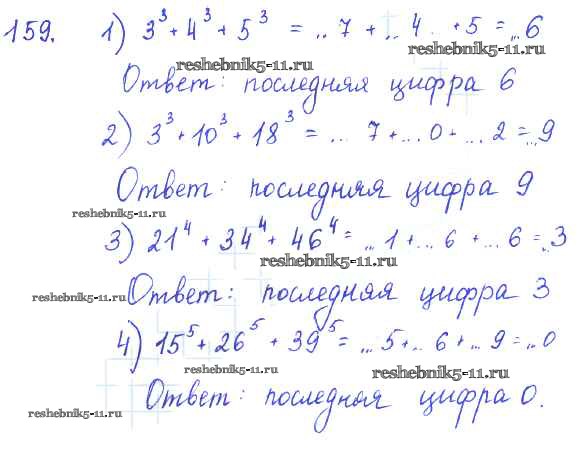 159. 1) 3³ + 4³ + 5³ = ..7 + ..4 + 5 = ..6
reshebnik5-11.ru reshebnik5-11.ru
Ответ: последняя цифра 6
2) 3³ + 10³ + 18³ = ... 7 + ...0 + ...2 = ...9
Ответ: последняя цифра 9
reshebnik5-11.ru
3) 21⁴ + 34⁴ + 46⁴ = ...1 + ...6 + ...6 = ..3
reshebnik5-11.ru
reshebnik5-11.ru Ответ: последняя цифра 3
4) 15⁵ + 26⁵ + 39⁵ = ...5 + ..6 + ...9 = ..0
reshebnik5-11.ru reshebnik5-11.ru
Ответ: последняя цифра 0.
reshebnik5-11.ru